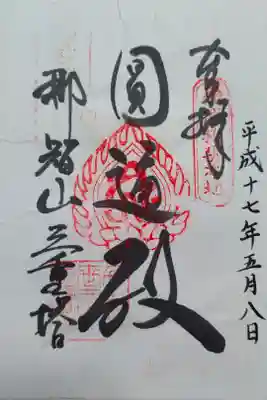 奉拝
平成十七年五月八日
圓通殿
那智山三重塔